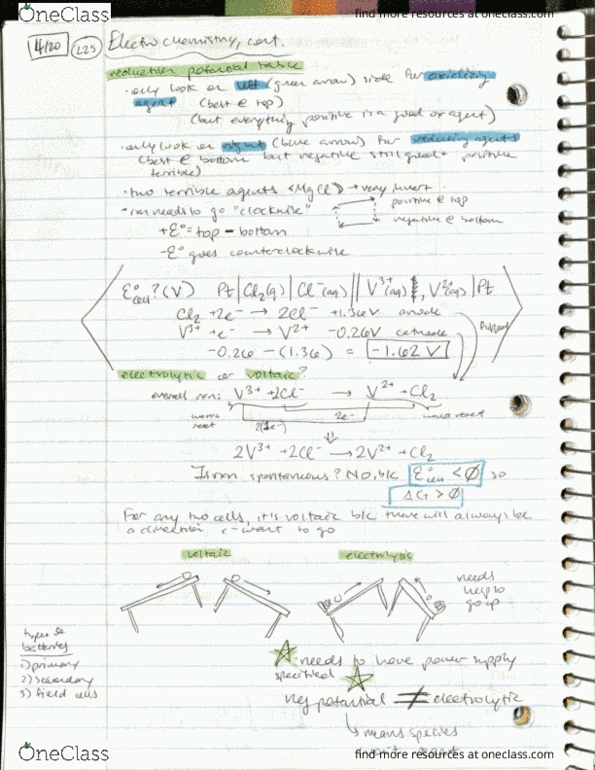 OneClass
find more resources at oneclass.com
4/20 L25 Electrochemistry, cont.
reduction potential table
· only look on left (green arrow) side for oxidizing
agent (best @ top)
(but everything positive is a good ox agent)
· only look on right (blue arrow) for reducing agents
(best @ bottom but negative still good + positive
terrible)
· two terrible agents → very inert
· rxn needs to go "clockwise"
positive @ top
negative @ bottom
+E° = top - bottom
-E° goes counterclockwise
E°cell? (V) Pt | Cl2(g) | Cl-(aq) || V3+(aq), V2+(aq) | Pt
Cl2 + 2e- → 2Cl- +1.36V anode
V3+ + e- → V2+ -0.26V cathode
-0.26 - (1.36) = -1.62 V
electrolytic or voltaic?
overall rxn: V3+ + 2Cl- → V2+ + Cl2
worst 2e-
2(1e-)
2V3+ + 2Cl- → 2V2+ + Cl2
Is rxn spontaneous? No, b/c E°cell < 0 so
ΔG > 0
For any two cells, it's voltaic b/c there will always be
a direction e- want to go
voltaic electrolysis
needs
help to
go up
types of
batteries
1) primary
2) secondary
3) field cells
needs to have power supply
specified
neg potential ≠ electrolytic
↳ means species
OneClass
find more resources at oneclass.com